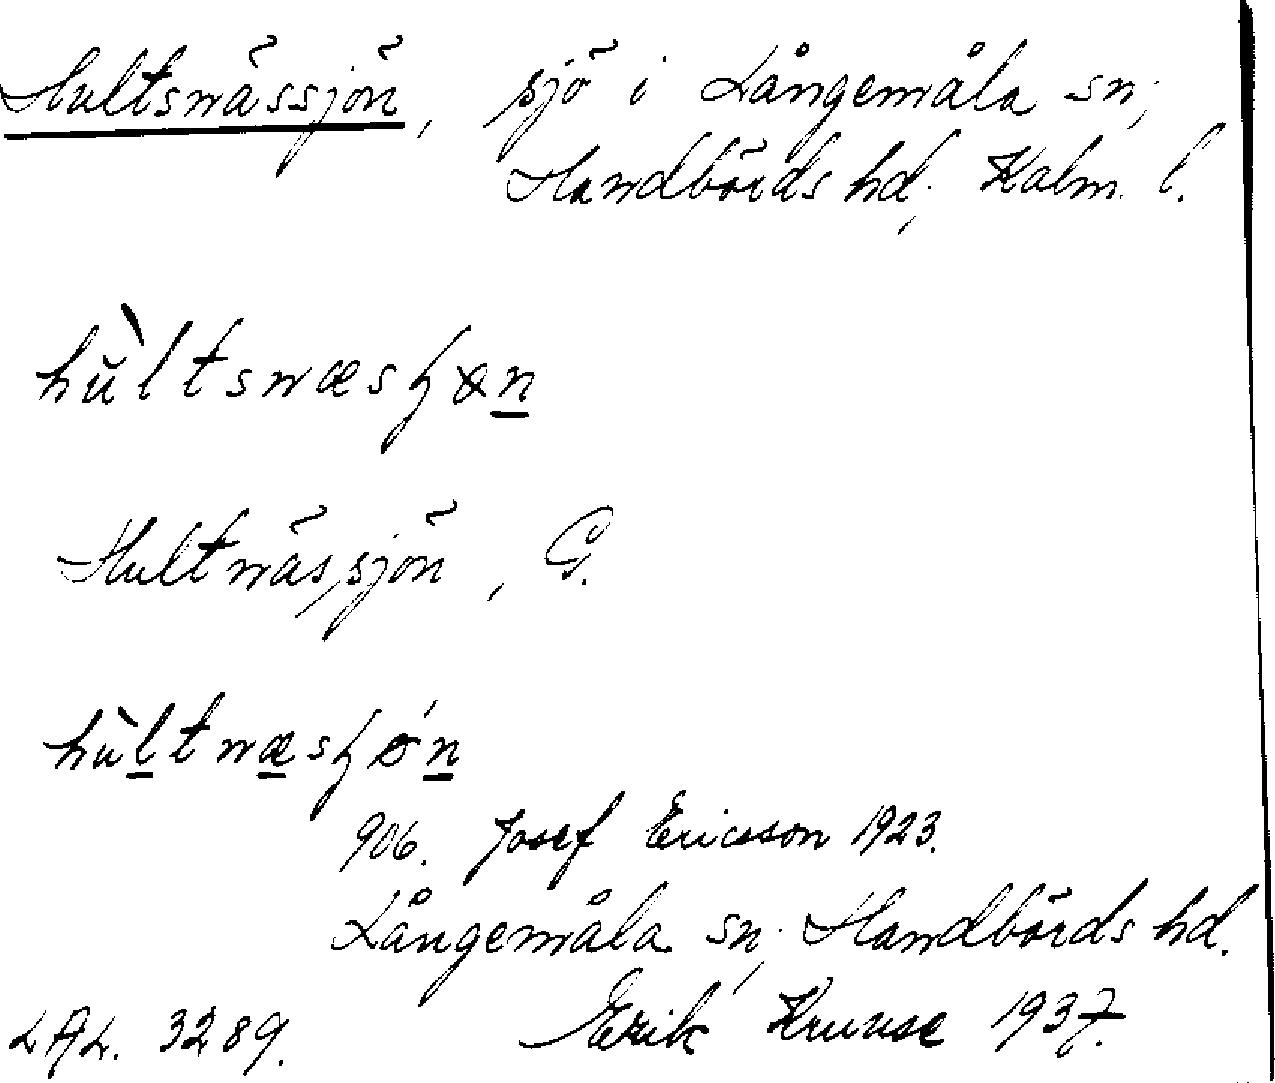 Hultsnässjön, sjö i Långemåla sn;
Handbörds hd; Kalm. l.
hùltsnæsɧən
Hultnässjön, G.
hùltnæsɧǿn
906. Josef Ericsson 1923.
Långemåla sn; Handbörds hd.
LAL. 3289. Erik Kruuse 1937.